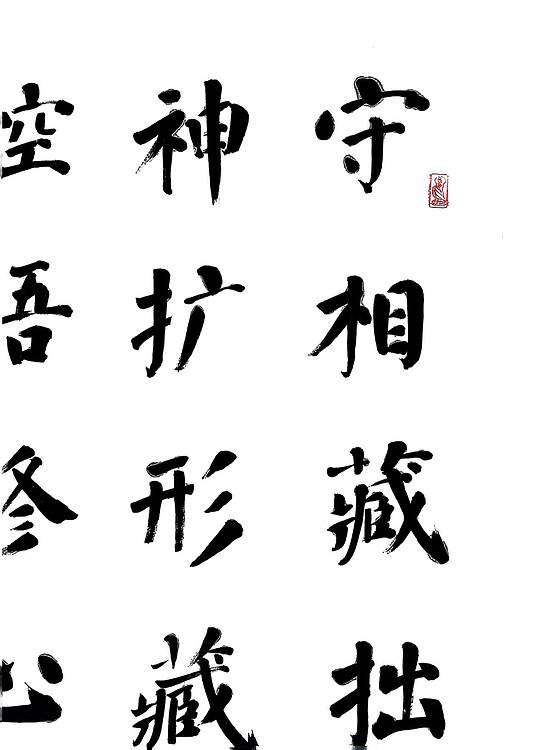 守相藏拙
神扩形藏
空吾修心